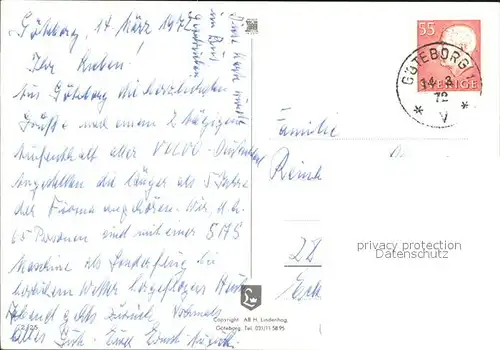 Göteborg, 14 März 1972
Ihr Lieben!
Aus Göteborg die herzlichsten
Grüße und einem 2 tägigen
Aufenthalt aller VOLVO-Deutschland
Angestellten die länger als 5 Jahre
der Firma angehören. Wir, d. h.
65 Personen sind mit einer SAS
Maschine als Sonderflug bei
herrlichem Wetter hergeflogen. Heute
Abend geht's zurück. Nochmals
alles Gute. Euer Ernst-August
im Bus
geschrieben
55
SVERIGE
GÖTEBORG 1
14.3.
72
* V *
Familie
22
privacy protection
Datenschutz
L
Copyright: AB H. Lindenhag
Göteborg. Tel. 031/11 58 95